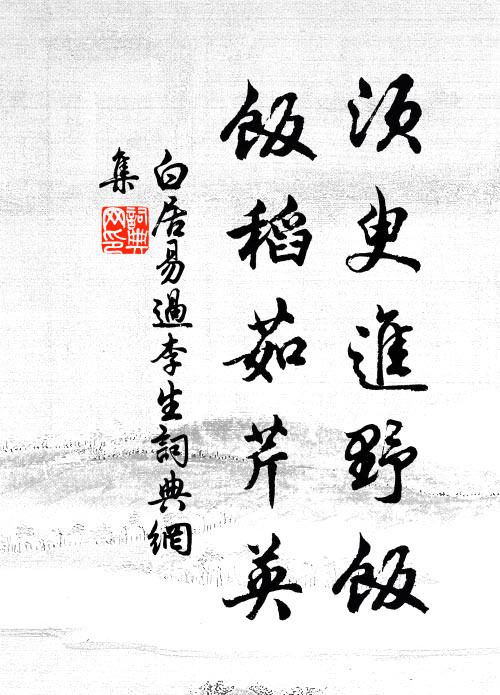 須臾進野飯
飯稻茹芹英
白居易過李生詞典網
集
詞典
网印